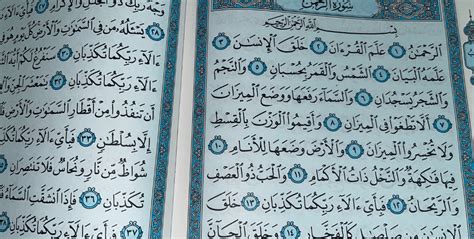 سُورَةُ الرَّحْمَٰن
بِسْمِ اللَّهِ الرَّحْمَٰنِ الرَّحِيمِ
الرَّحْمَٰنُ ١ عَلَّمَ الْقُرْءَانَ ٢ خَلَقَ الْإِنسَٰنَ ٣
عَلَّمَهُ الْبَيَانَ ٤ الشَّمْسُ وَالْقَمَرُ بِحُسْبَانٍ ٥ وَالنَّجْمُ
وَالشَّجَرُ يَسْجُدَانِ ٦ وَالسَّمَآءَ رَفَعَهَا وَوَضَعَ الْمِيزَانَ
٧ أَلَّا تَطْغَوْا۟ فِي الْمِيزَانِ ٨ وَأَقِيمُوا۟ الْوَزْنَ بِالْقِسْطِ
وَلَا تُخْسِرُوا۟ الْمِيزَانَ ٩ وَالْأَرْضَ وَضَعَهَا لِلْأَنَامِ ١٠
فِيهَا فَٰكِهَةٌ وَالنَّخْلُ ذَاتُ الْأَكْمَامِ ١١ وَالْحَبُّ ذُو الْعَصْفِ
وَالرَّيْحَانُ ١٢ فَبِأَيِّ ءَالَآءِ رَبِّكُمَا تُكَذِّبَانِ ١٣ خَلَقَ
١٤ وَخَلَقَ الْجَانَّ
ذُو الْجَلَٰلِ وَالْإِكْرَامِ
٢٨ يَسْـَٔلُهُ مَن فِي السَّمَٰوَٰتِ وَالْأَرْضِ كُلَّ يَوْمٍ هُوَ
ءَالَآءِ رَبِّكُمَا تُكَذِّبَانِ ٣٠ سَنَفْرُغُ لَكُمْ
ءَالَآءِ رَبِّكُمَا تُكَذِّبَانِ ٣٢
أَن تَنفُذُوا۟ مِنْ أَقْطَارِ السَّمَٰوَٰتِ وَالْأَرْضِ
إِلَّا بِسُلْطَٰنٍ ٣٣ فَبِأَيِّ ءَالَآءِ
شُوَاظٌ مِّن نَّارٍ وَنُحَاسٌ فَلَا تَنتَصِرَانِ
تُكَذِّبَانِ ٣٦ فَإِذَا انشَقَّتِ السَّمَآءُ
٣٧